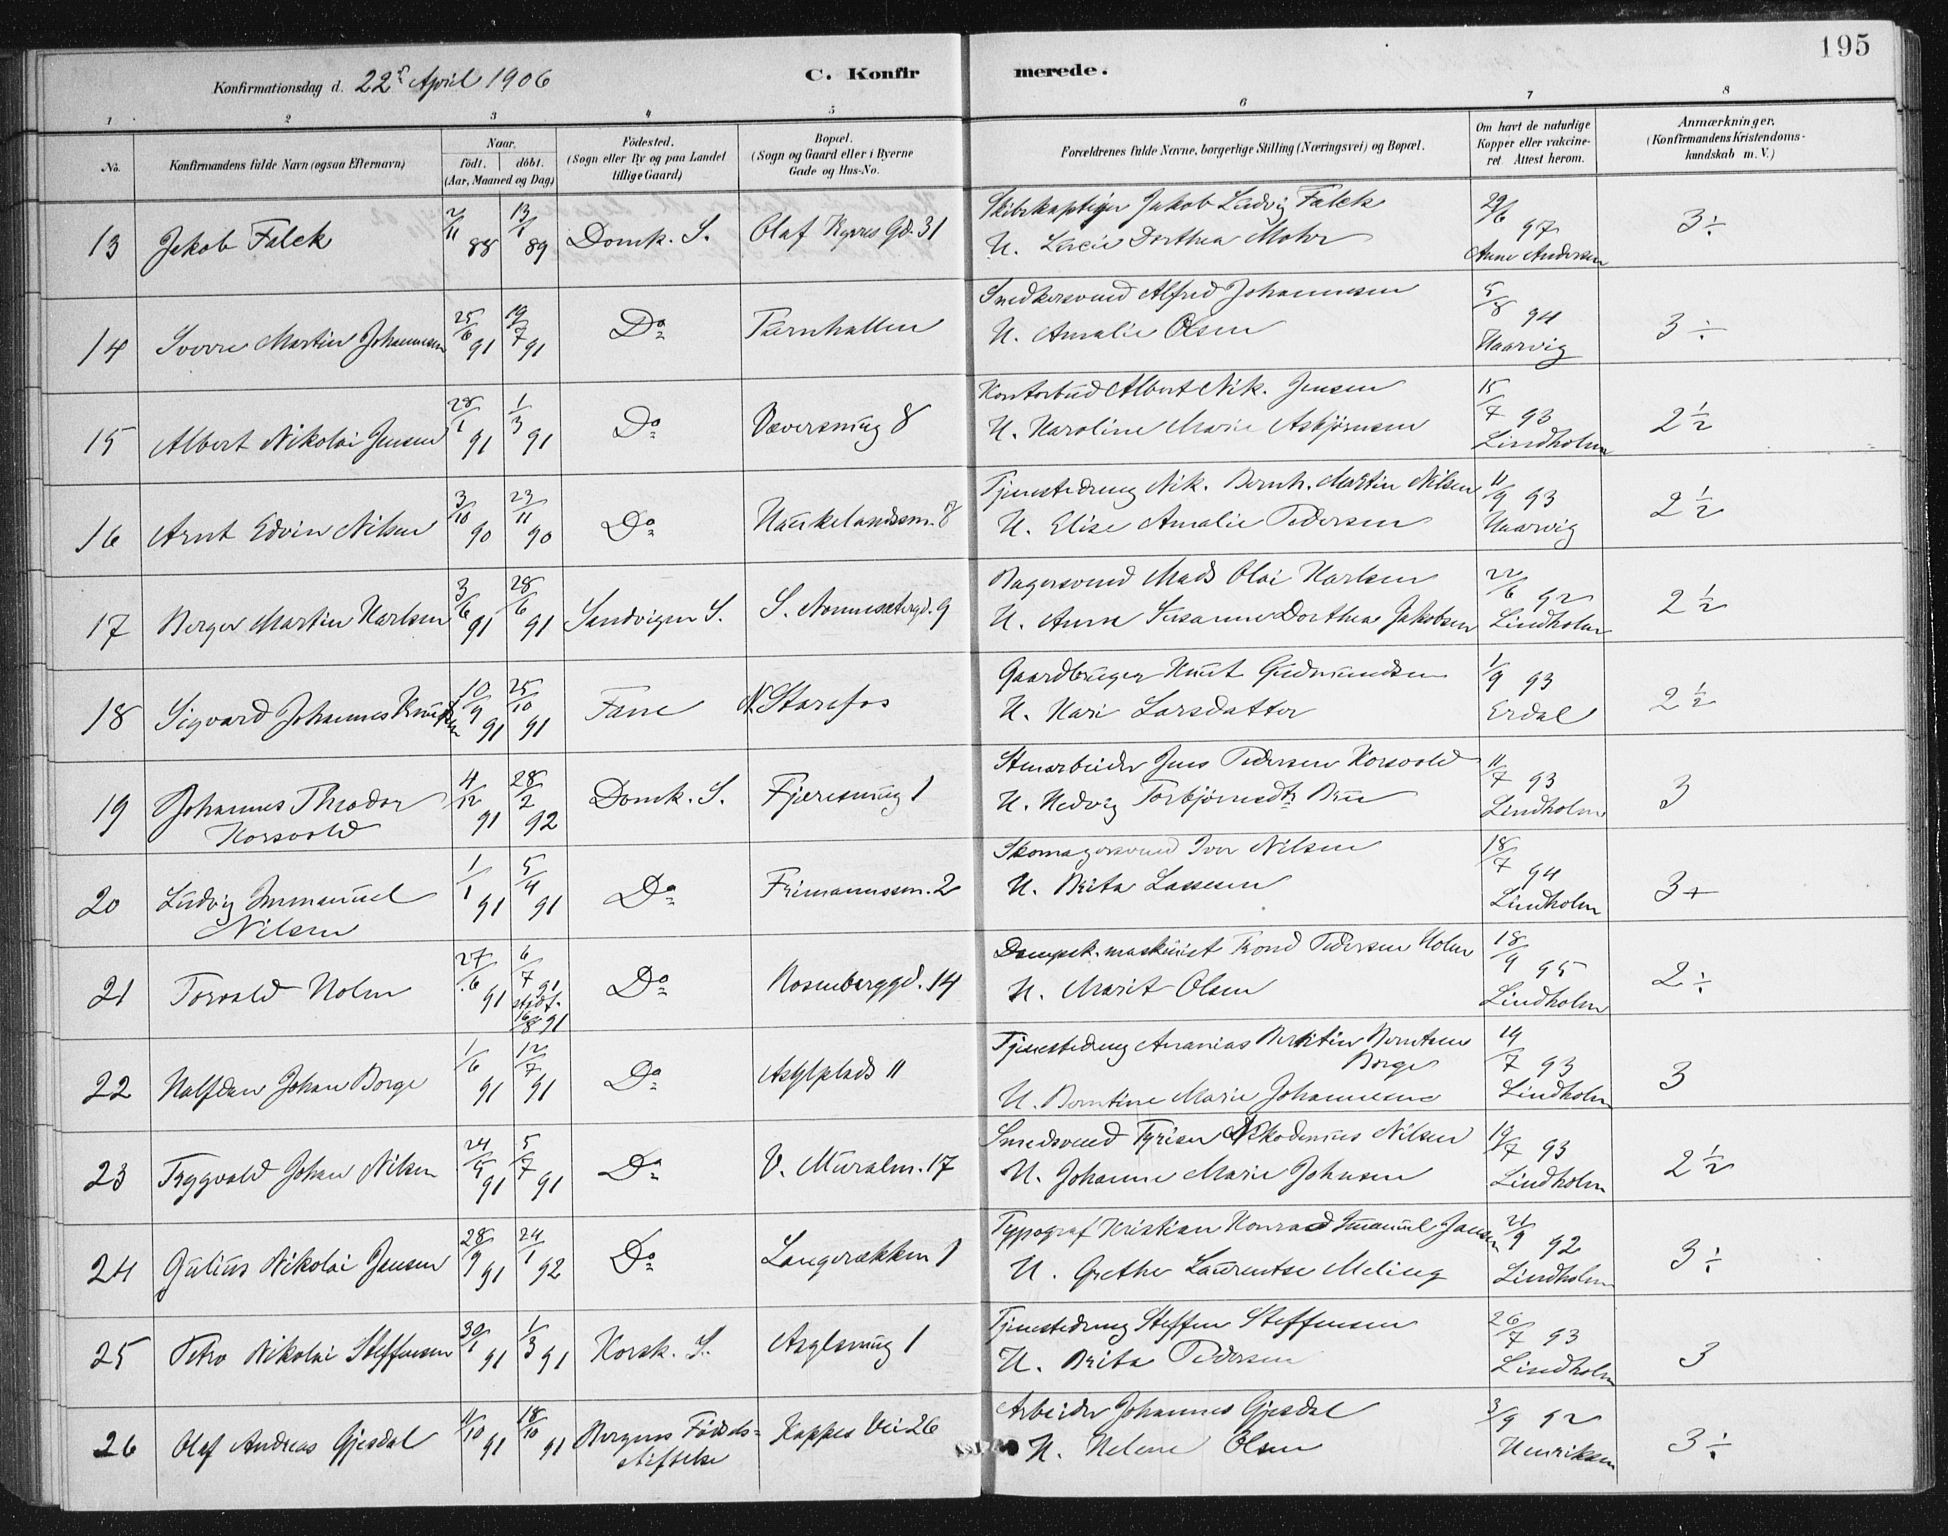 195
Konfirmationsdag d. 22de April 1906
C. Konfirmerede.
1 2 3 4 5 6 7 8
No. Konfirmandens fulde Navn (ogsaa Efternavn) Naar, født. døbt. (Aar, Maaned og Dag) Fødested. (Sogn eller By og paa Landet tillige Gaard) Bopæl. (Sogn og Gaard eller i Byerne Gade og Hus-No. Forældrenes fulde Navne, borgerlige Stilling (Næringsvei) og Bopæl. Om havt de naturlige Kopper eller vakcineret. Attest herom. Anmærkninger. (Konfirmandens Kristendomskundskab m. V.)
13 Jakob Falck 2/11 88 13/1 89 Domk. S. Olaf Kyrres Gd. 31 Skibskaptein Jakob Ludvig Falck 29/6 97 3÷
H. Dorthea Mohr Anne Andersen
14 Sverre Martin Johannesen 25/6 91 19/7 91 Do Tarnhallen Snedkersvend Alfred Johannesen 5/8 94 3÷
H. Amalie Olsen Haarvig
15 Albert Nikolai Jensen 28/1 91 1/3 91 Do Væversmug 8 Kontorbud Albert Nik. Jensen 15/7 93 2 1/2
H. Karoline Marie Asbjørnsen Lindholm
16 Arnt Edvin Nilsen 3/10 90 23/11 90 Do Haukelandssm. 8 Tjenestedreng Nik. Bernh. Martin Nilsen 11/9 93 2 1/2
H. Elise Amalie Pedersen Haarvig
17 Berger Martin Karlsen 3/6 91 28/6 91 Sandvigen S. S. Nonnesetergd. 9 Bagersvend Mads Olai Karlsen 22/6 92 2 1/2
H. Anna Susanne Dorthea Jakobsen Lindholm
18 Sigvard Johannes Knutsen 10/9 91 25/10 91 Fane N. Starefos Gaardbruger Knut Gudmundsen 1/9 93 2 1/2
H. Kari Larsdatter Erdal
19 Johannes Theodor 4/12 91 28/2 92 Domk. S. Fjæresmug 1 Stenarbeider Jens Pedersen Korsvold 11/7 93 3
Korsvold H. Hedvig Torbjørnsdtr. Brue Lindholm
20 Ludvig Immanuel 1/1 91 5/4 91 Do Frimannssm. 2 Skomagersvend Iver Nilsen 18/7 94 3+
Nilsen H. Brita Lassesen Lindholm
21 Torvald Holm 27/6 91 6/7 91 Do Rosenberggd. 14 Dampsk.maskinist Trond Pedersen Holm 18/9 95 2÷
stadf. 16/8 91 H. Marit Olsen Lindholm
22 Halfdan Johan Borge 1/6 91 12/7 91 Do Asylplads 11 Tjenestedreng Ananias Bertin Berntsen 14/7 93 3
Borge
H. Berntine Marie Johannesen Lindholm
23 Trygvald Johan Nilsen 24/4 91 5/7 91 Do V. Muralm. 17 Smedsvend Nikodemus Nilsen 19/7 93 2 1/2
H. Johanne Marie Johnsen Lindholm
24 Julius Nikolai Jansen 28/9 91 24/1 92 Do Langerækken 1 Typograf Kristian Konrad Imanuel Jansen 21/9 92 3÷
H. Grethe Laurentse Meling Lindholm
25 Petro Nikolai Steffensen 30/1 91 1/3 91 Korsk. S. Asylsmug 1 Tjenestedreng Steffen Steffensen 26/7 93 3
H. Brita Pedersen Lindholm
26 Olaf Andreas Gjesdal 11/10 91 18/10 91 Bergens Fødselsstiftelse Kappes Vei 26 Arbeider Johannes Gjesdal 3/9 92 3÷
H. Helene Olsen Henriksen